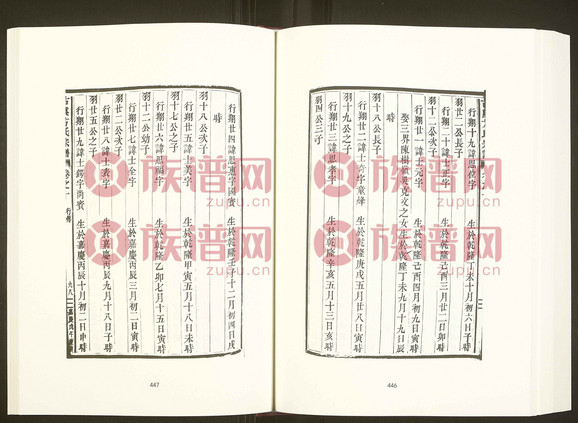 行翔十九諱思位字 生於乾隆丁未十月初六日子時
羽二公長子
行翔二十諱士正字 生於乾隆己酉三月廿二日卯時
羽十二公次子
行翔廿一諱士元字 生於乾隆丁未九月十九日辰
時
娶三界陳樹敬兒克文之女生於乾隆
羽十八公長子
行翔廿二諱士奇字 生於乾隆庚戌五月廿八日戌時
羽十九公之子
行翔廿三諱思孝字 生於乾隆辛亥五月十三日亥時
羽四公三子
446
行翔廿四諱思惠字國賓 生於乾隆壬子十二月初四日戌
時
羽十八公次子
行翔廿五諱士美字 生於乾隆甲寅五月十八日未時
羽十七公之子
行翔廿六諱思福字 生於乾隆乙卯七月十五日寅時
羽十二公幼子
行翔廿七諱士全字 生於嘉慶丙辰三月初二日寅時
羽廿二公次子
行翔廿八諱士表字 生於嘉慶丙辰九月十八日子時
羽廿五公之子
行翔廿九諱士鍔字尚賓 生於嘉慶丙辰十月初二日申時
行傳
九八
447
族普网
zupu.cn
族普网
zupu.cn
族普网
zupu.cn
族普网
zupu.cn